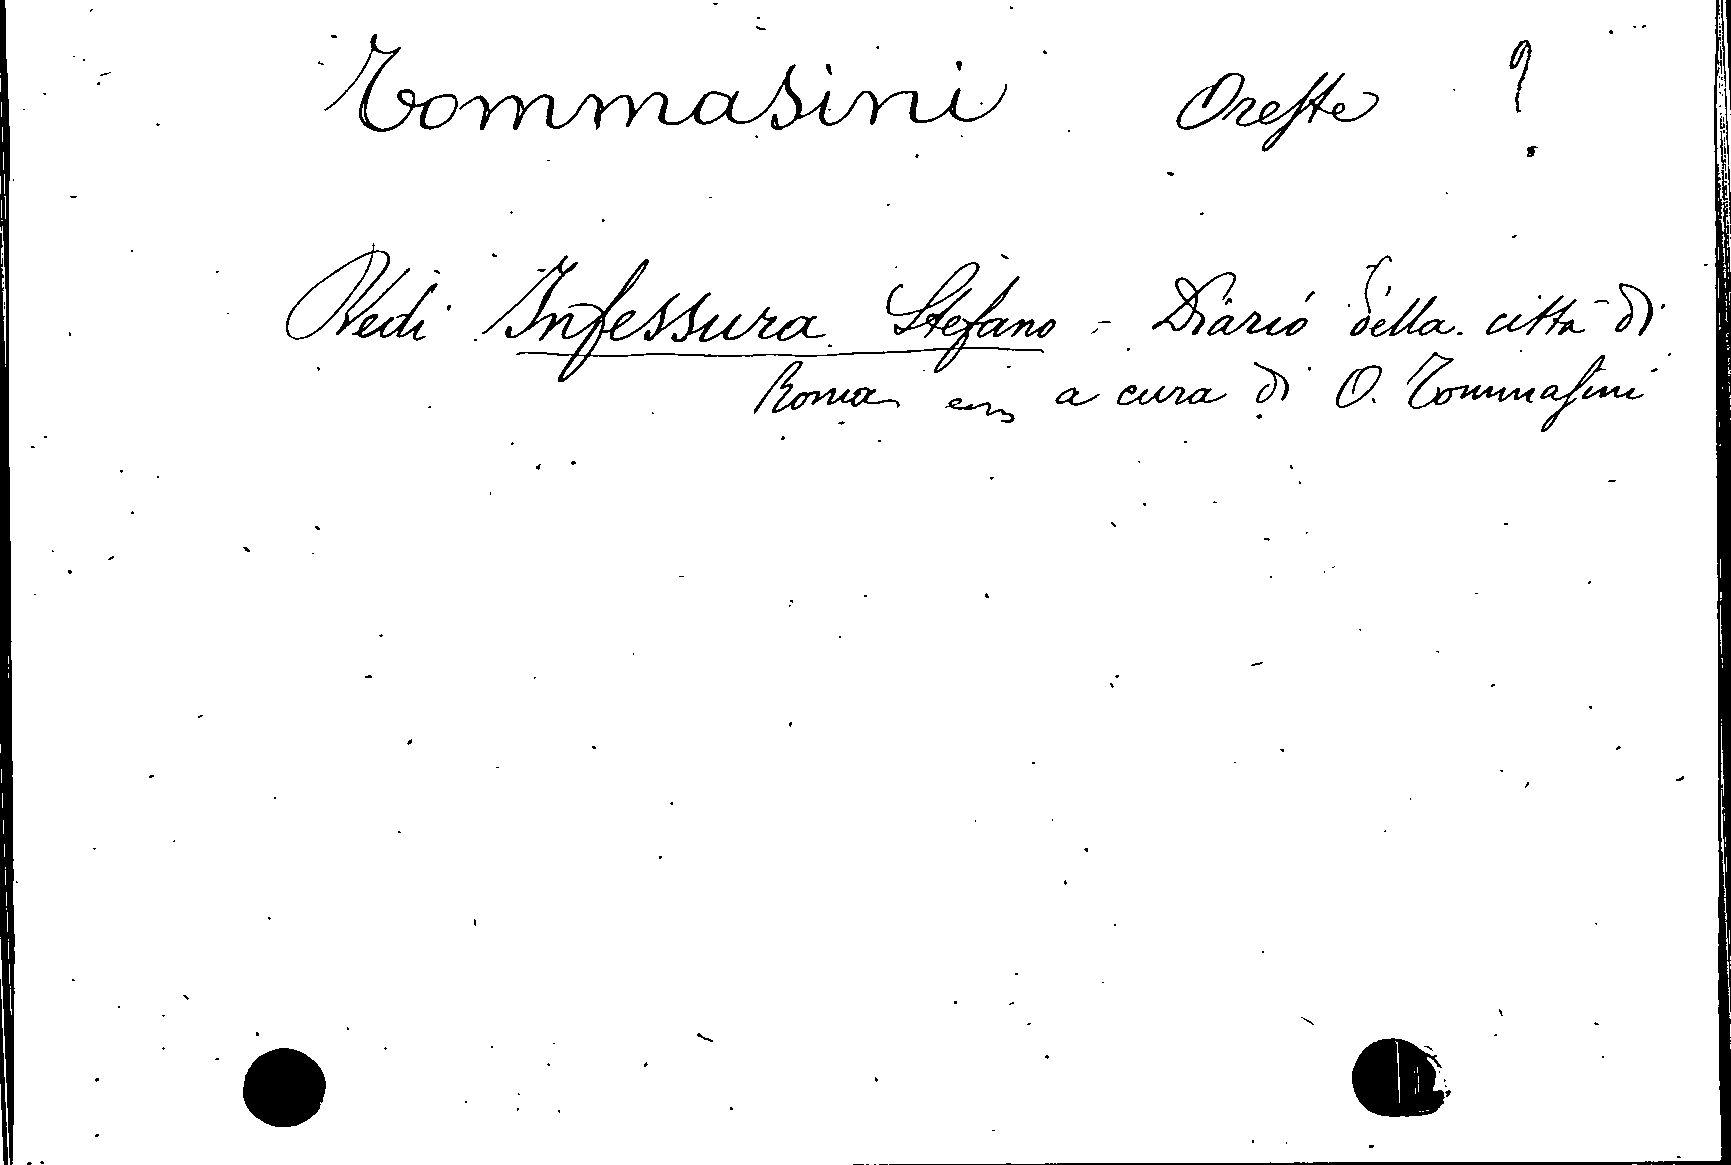 Tommasini Oreste ?
Vedi Infessura Stefano - Diario della città di
Roma a cura di O. Tommasini